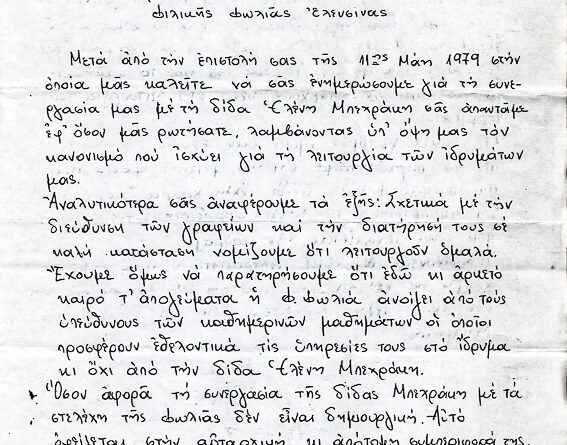 φιλικῆς φωλιᾶς Ἐλευσίνας
Μετά ἀπό τήν ἐπιστολή σας τῆς 11ης Μάη 1979 στήν
ὁποία μᾶς καλεῖτε νά σᾶς ἐνημερώσουμε γιά τή συνε-
ργασία μας μέ τή δίδα Ἑλένη Μπεχράκη σᾶς ἀπαντᾶμε
ἐφ' ὅσον μᾶς ρωτήσατε, λαμβάνοντας ὑπ' ὄψη μας τόν
κανονισμό πού ἰσχύει γιά τή λειτουργία τῶν ἱδρυμάτων
μας.
Ἀναλυτικότερα σᾶς ἀναφέρουμε τά ἑξῆς: Σχετικά μέ τήν
διεύθυνση τῶν γραφείων καί τήν διατήρησή τους σέ
καλή κατάσταση νομίζουμε ὅτι λειτουργοῦν ὁμαλά.
Ἔχουμε ὅμως νά παρατηρήσουμε ὅτι ἐδῶ κι ἀρκετό
καιρό τ' ἀπογεύματα ἡ Φ. Φωλιά ἀνοίγει ἀπό τούς
ὑπεύθυνους τῶν καθημερινῶν μαθημάτων οἱ ὁποῖοι
προσφέρουν ἐθελοντικά τίς ὑπηρεσίες τους στό ἵδρυμα
κι ὄχι ἀπό τήν δίδα Ἑλένη Μπεχράκη.
Ὅσον ἀφορᾶ τή συνεργασία τῆς δίδας Μπεχράκη μέ τά
στελέχη τῆς Φωλιᾶς δέν εἶναι δημιουργική. Αὐτό
ὀφείλεται στήν αὐταρχική κι ἀπότομη συμπεριφορά της.